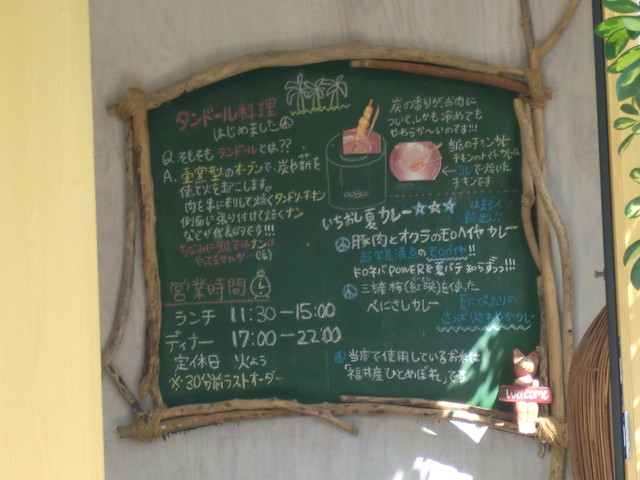 タンドール料理
はじめました
Q. そもそもタンドールとは??
A. 壺窯型のオーブンで、炭や薪を
使って火を起こします。
肉を串に刺して焼くタンドリーチキン
側面に張り付けて焼くナン
などが代表的です!!!
ちなみに当店ではナンは
やってませんが…(泣)
営業時間
ランチ 11:30-15:00
ディナー 17:00-22:00
定休日 火よう
※30分前ラストオーダー
炭の香りが、お肉に
ついて、しかも冷めても
やわらか~いのです!!!
当店のチキンカレー
チキンのトマトカレーは
←コレで焼いた
チキンです。
いちおし夏カレー☆☆☆
豚肉とオクラのモロヘイヤカレー
満点のモロヘイヤ!!
ドロネバPOWERで夏バテ知らずっっ!!!
三塘柿(紅映)を使った
べにさしカレー
夏にぴったりの
さっぱりさわやかカレー
当店で使用しているお米は
「福井産ひとめぼれ」です
Welcome